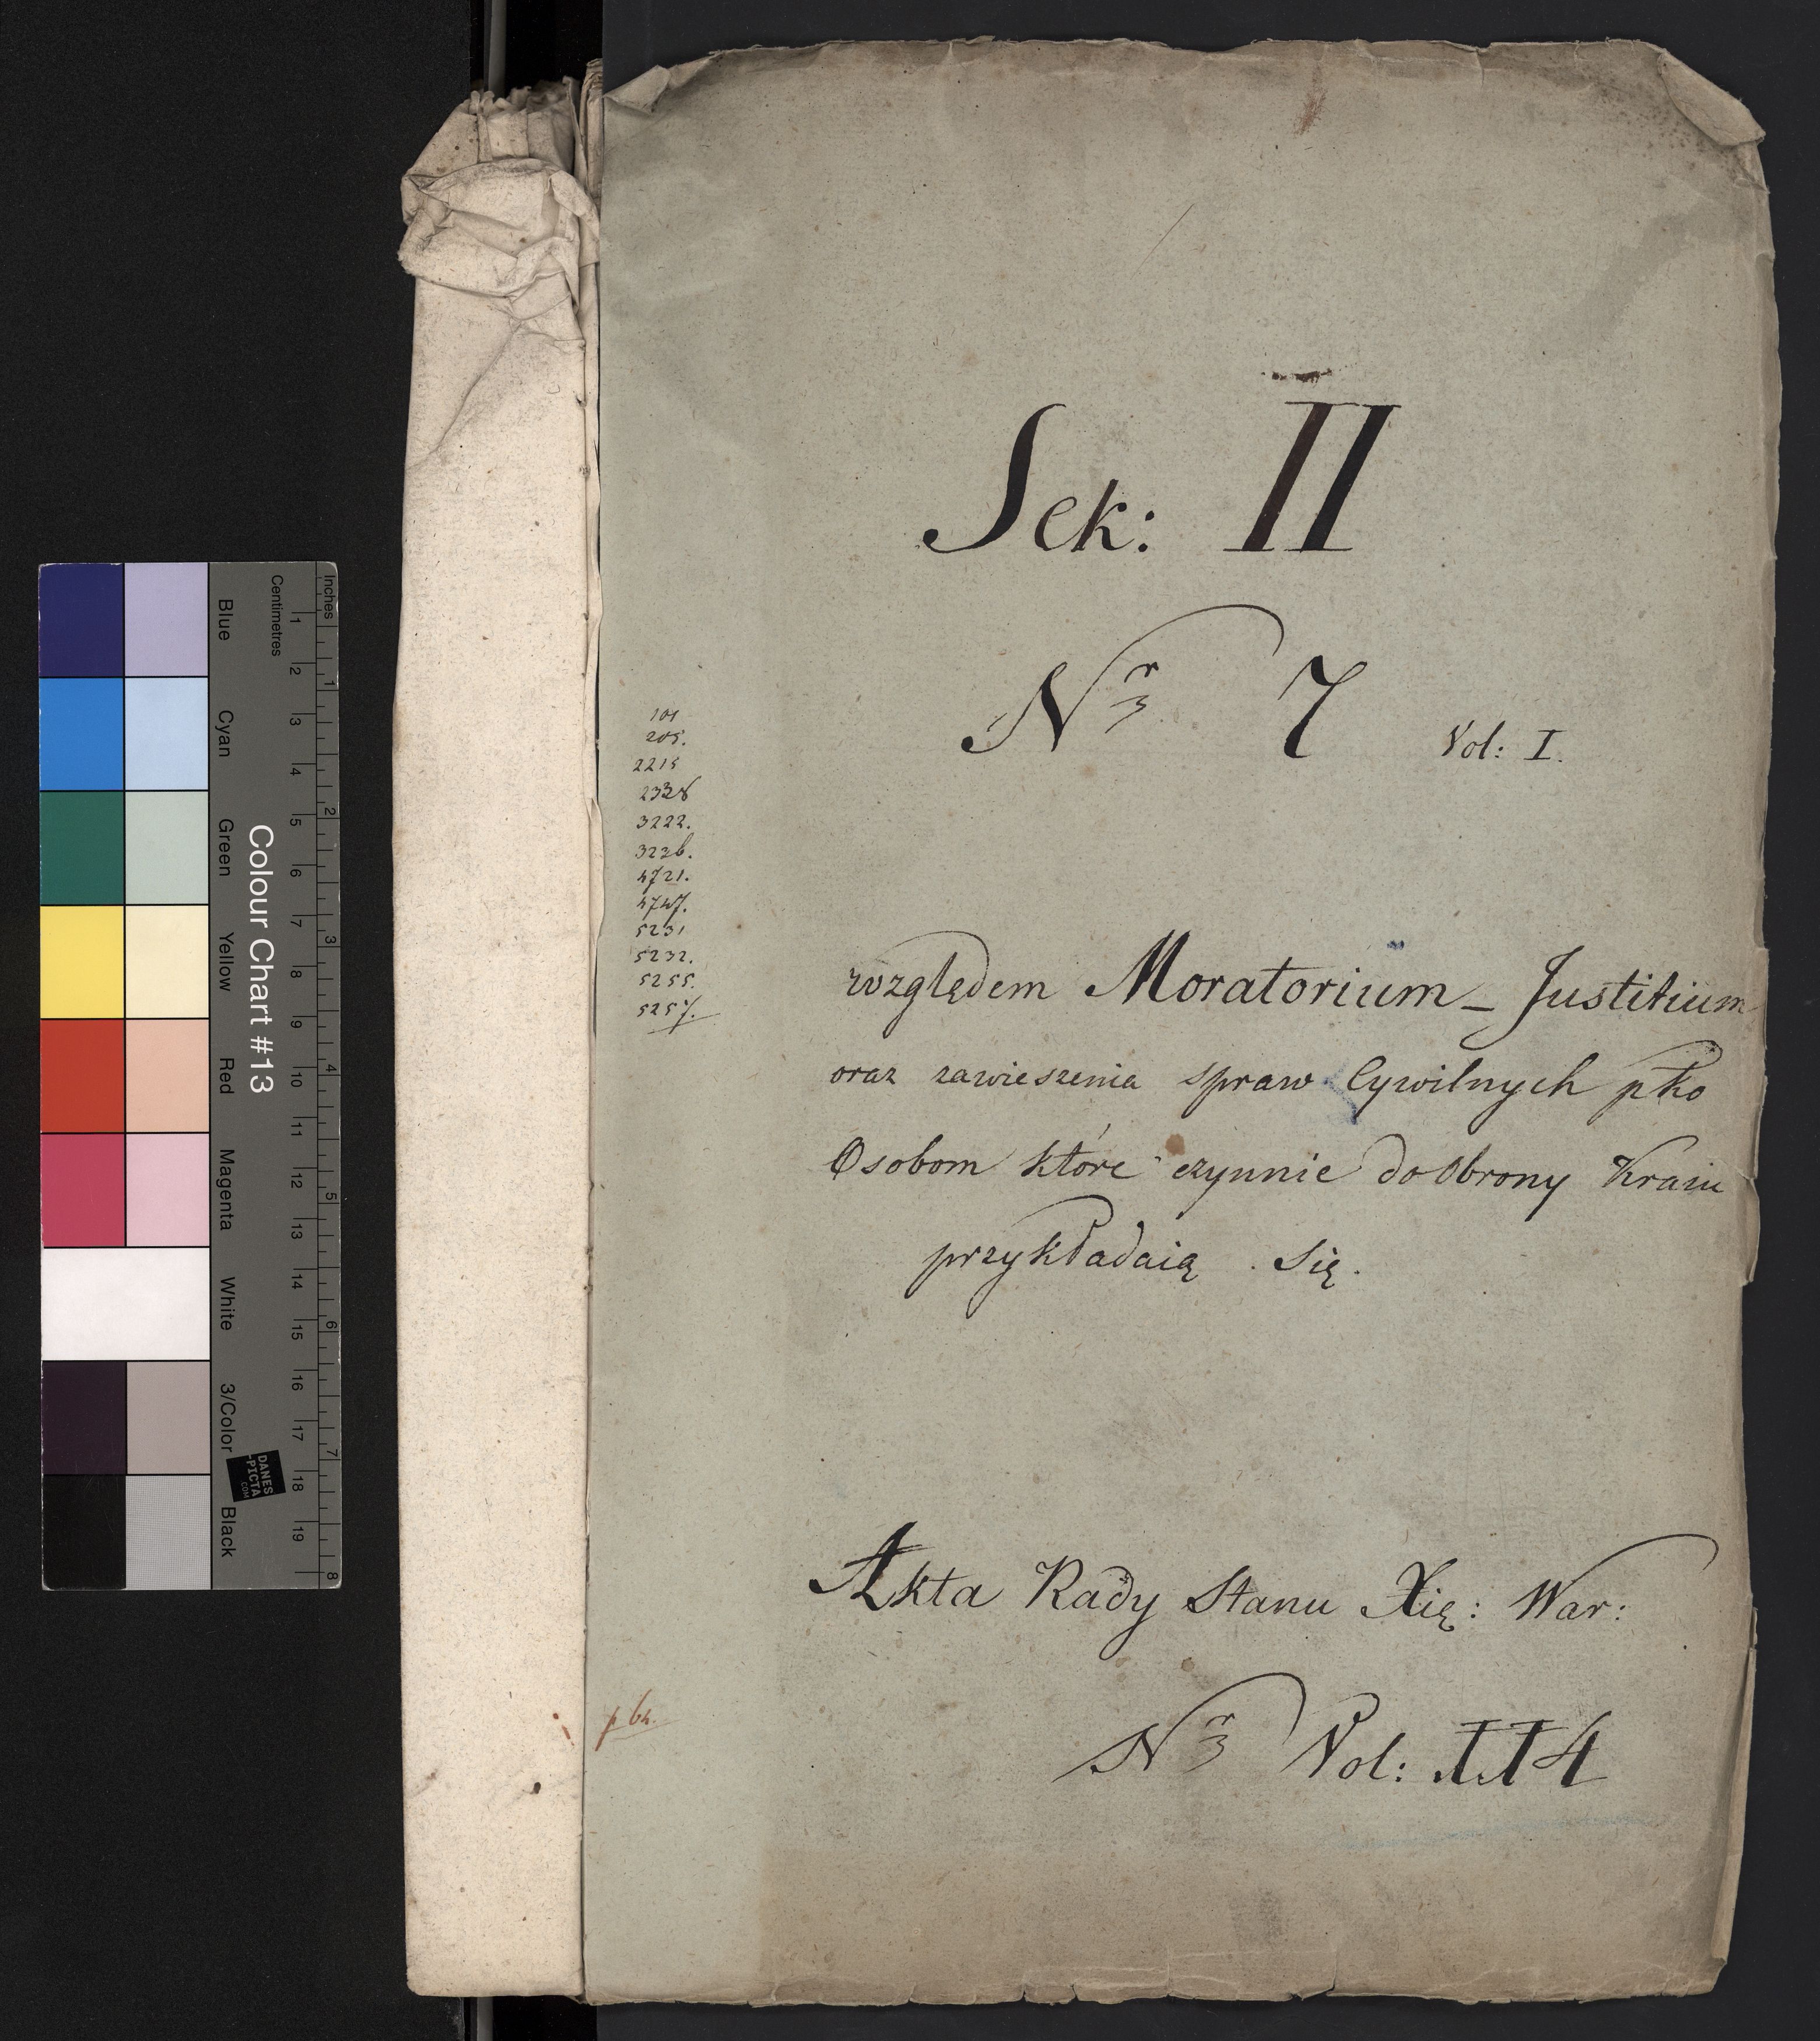 Sek: II
Nr 7 Vol: I.
101
205.
2215
2328
3222.
3226.
4721.
4747.
5231
5232.
5255.
5257.
względem Moratorium - Justitium
oraz zawieszenia spraw Cywilnych pko
Osobom które czynnie do Obrony Kraiu
przykładaią się.
Akta Rady Stanu Xię: War:
Nr Vol: 114
p 64.
Inches
Centimetres
1 2 3 4 5 6 7 8 9 10 11 12 13 14 15 16 17 18 19
1 2 3 4 5 6 7 8
Colour Chart #13
Blue Cyan Green Yellow Red Magenta White 3/Color Black
DANES
-PICTA
.COM